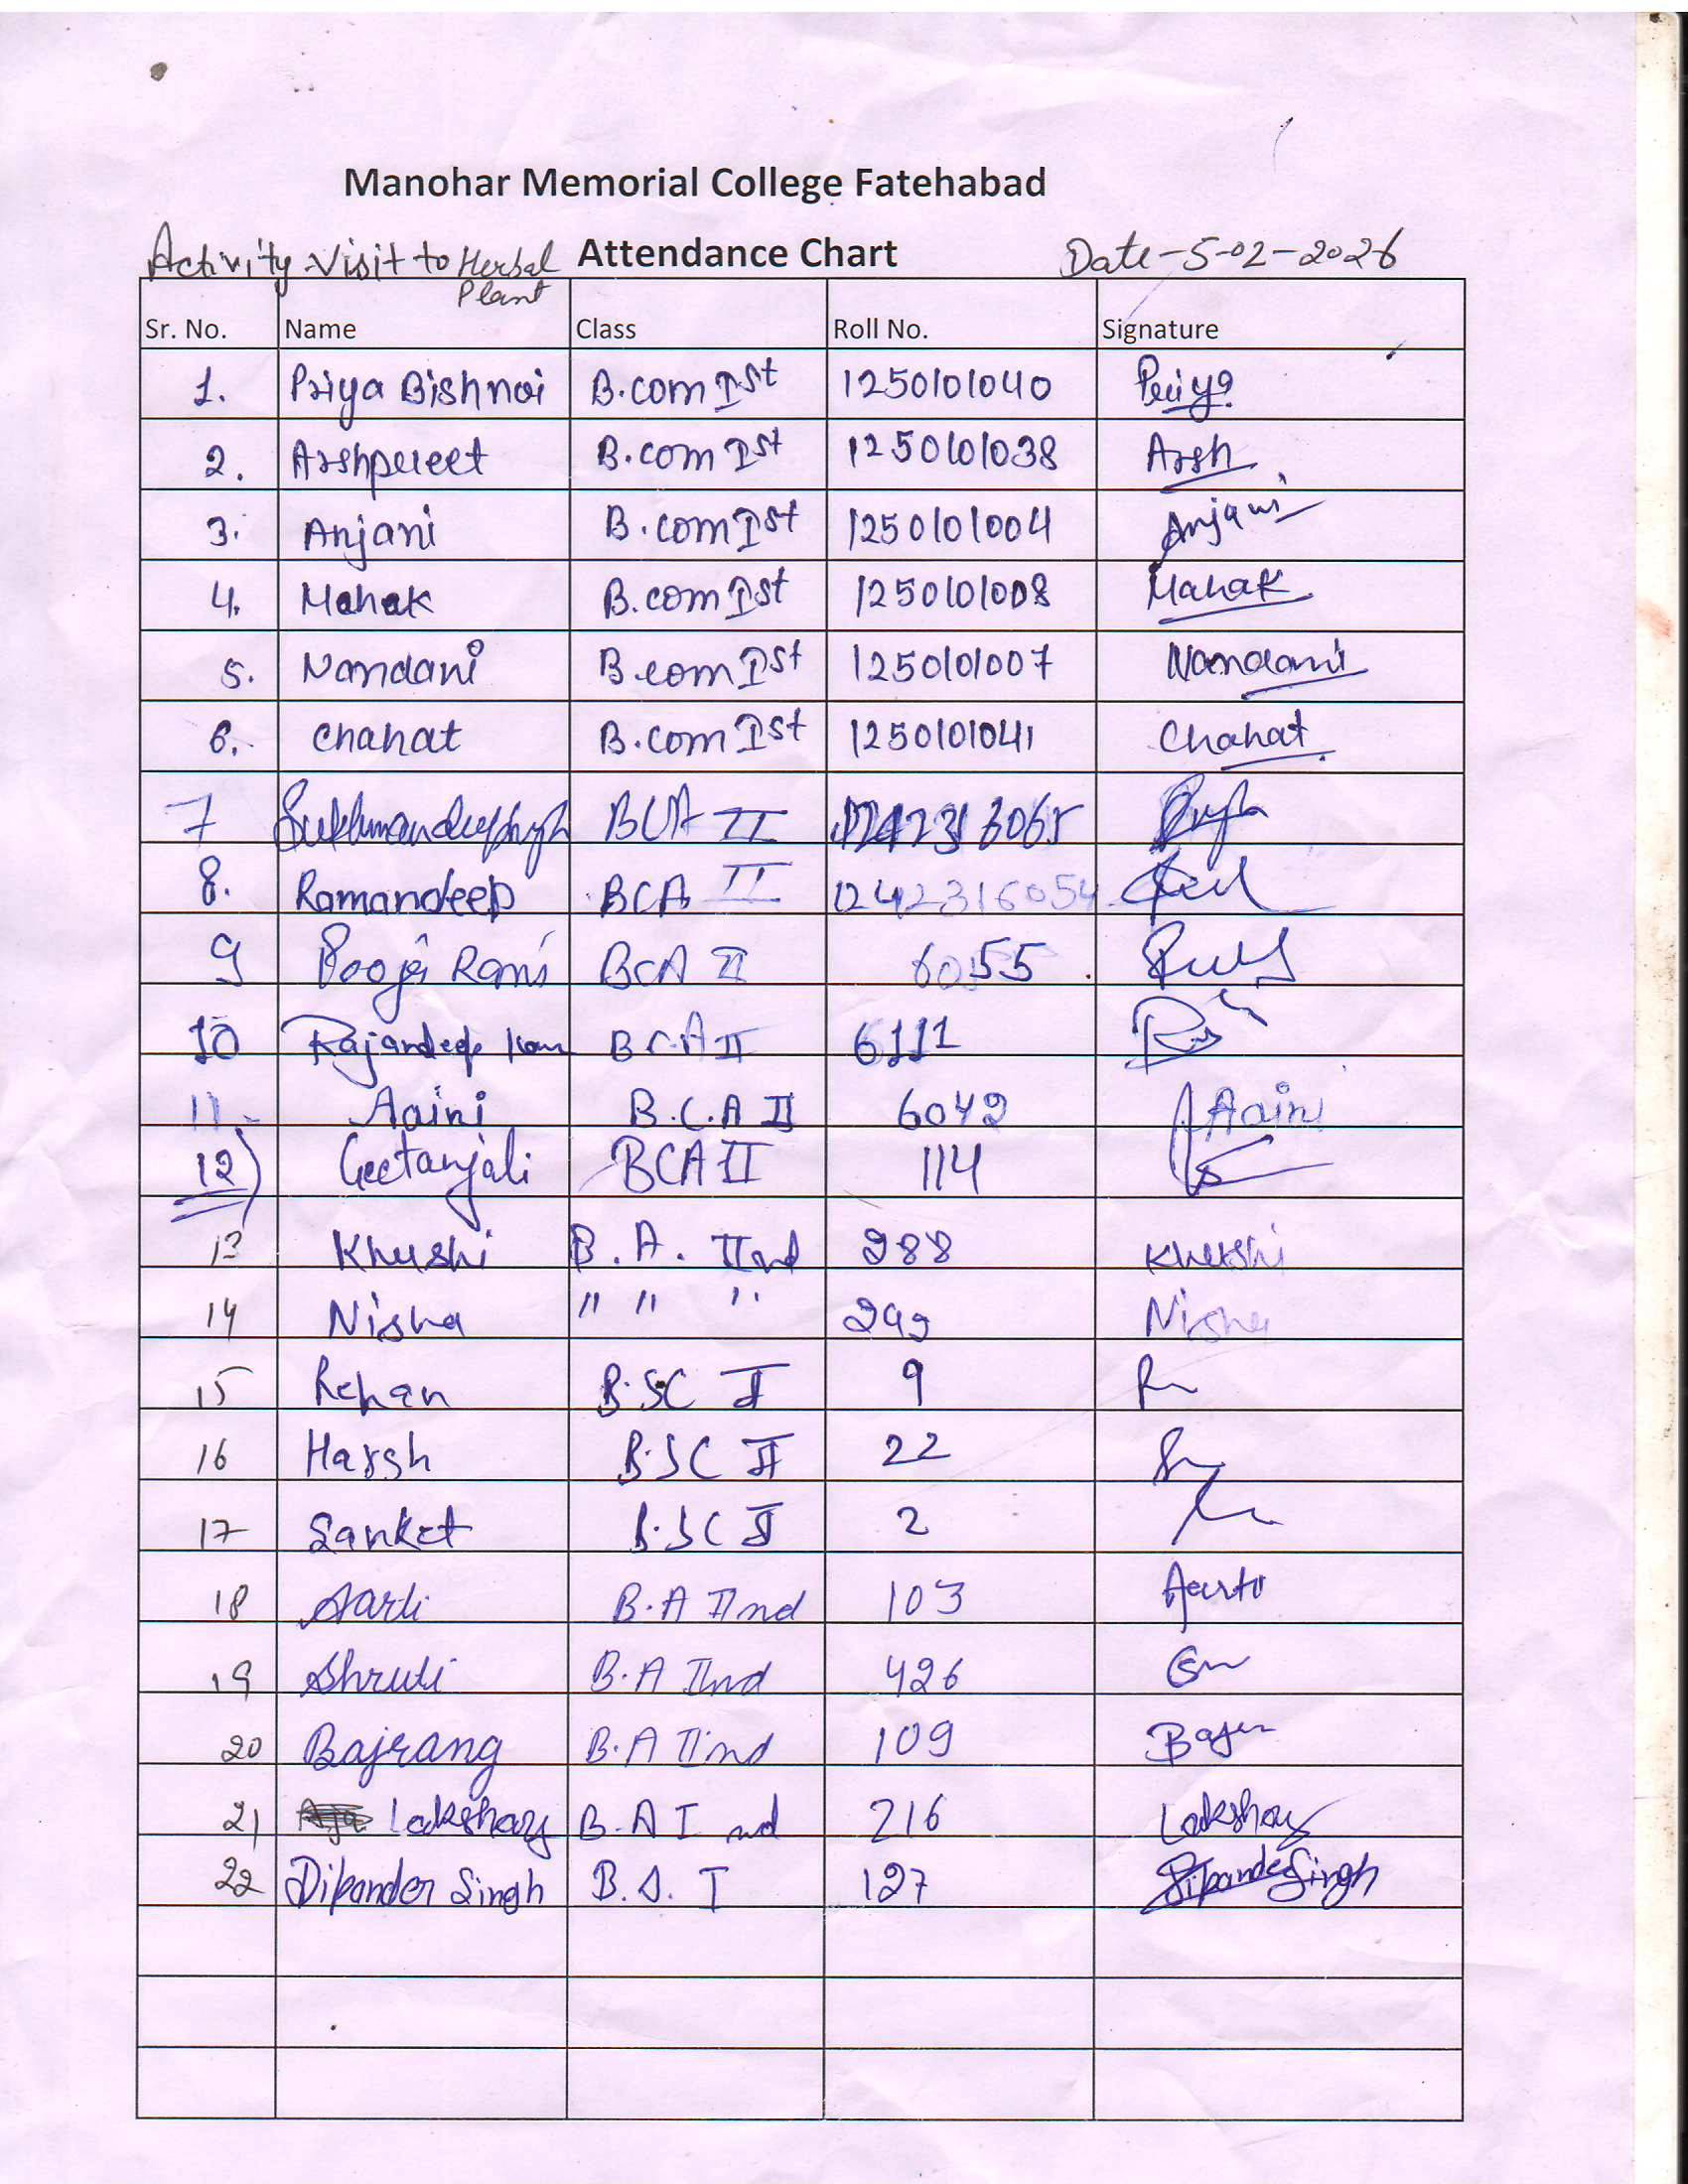 Manohar Memorial College Fatehabad
Activity-Visit to Herbal Plant Attendance Chart Date-5-02-2026
Sr. No. Name Class Roll No. Signature
1. Priya Bishnoi B.com Ist 1250101040 Priya
2. Arshpreet B.com Ist 1250101038 Arsh
3. Anjani B.com Ist 1250101004 Anjani
4. Mahak B.com Ist 1250101008 Mahak
5. Nandani B.com Ist 1250101007 Nandani
6. Chahat B.com Ist 1250101041 Chahat
7 BCA II
8. Ramandeep BCA II 1242316054
9 Pooja Rani BCA II 6055
10 Rajandeep BCA II 6111
11 Aaini B.C.A II 6042 Aaini
12) Geetanjali BCA II 114
13 Khushi B.A. IInd 288 Khushi
14 Nisha " " " 299 Nisha
15 Rehan B.SC II 9
16 Harsh B.SC II 22
17 Sanket B.SC II 2
18 Aarti B.A IInd 103 Aarti
19 Shruti B.A IInd 426
20 Bajrang B.A IInd 109
21 Lakshay B.A I nd 216 Lakshay
22 Dipander Singh B.A. I 127 Dipander Singh